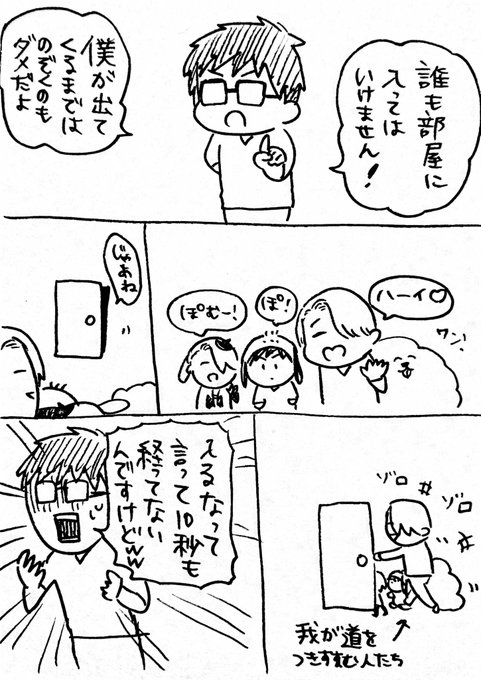 誰も部屋に
入っては
いけません!
僕が出て
くるまでは
のぞくのも
ダメだよ
ハーイ♡
ワン!
ぽ!
ぽむー!
じゃあね
ゾロ
ゾロ
我が道を
つきすすむ人たち
入るなって
言って10秒も
経ってない
んですけどww